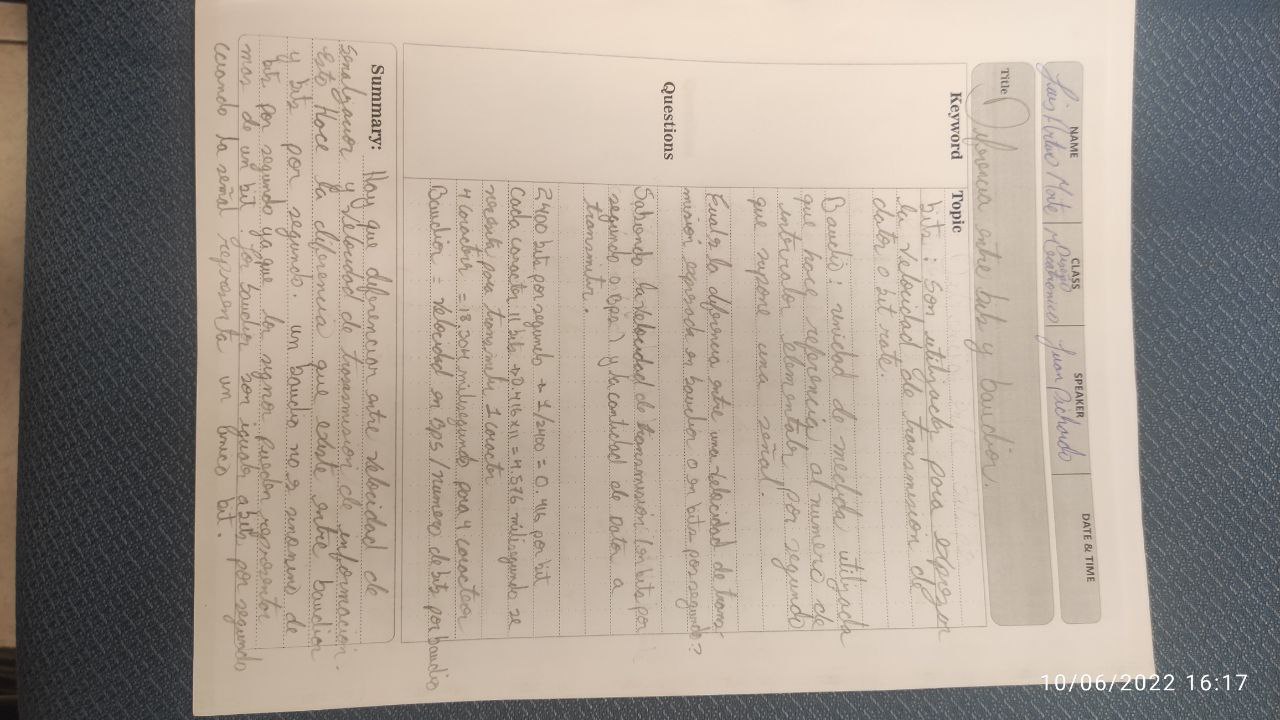 NAME CLASS SPEAKER DATE & TIME
Luis Mecatronico Juan Pichardo
Title Diferencia entre bits y baudios.
Keyword Topic
bits: Son utilizados para
la velocidad de transmision de
datos o bit rate.
Baudio: unidad de medida utilizada
que hace referencia al numero de
intervalos elementales por segundo
que supone una señal.
la diferencia entre una velocidad de transmi-
expresada en baudios o en bits por segundo?
Questions
Sabiendo la velocidad de transmision (en bits por
segundo o Bps) y la cantidad de Datos a
transmitir.
2400 bit por segundo → 1/2400 = 0.416 por bit
Cada caracter 11 bits → 0.416 x 11 = 4.576 milisegundo se
necesita para transmitir 1 caracter
4 caracteres = 18,304 milisegundo para 4 caracteres
Baudios = velocidad en Bps / numero de bits por baudio
Summary: Hay que diferenciar entre velocidad de
y velocidad de transmision de informacion.
Esto Hace la diferencia que existe entre baudios
y bits por segundo. un baudio no es sinonimo de
bits por segundo ya que los signos pueden representar
mas de un bit por baudios son iguales a bits por segundo
cuando la señal representa un unico bit.
10/06/2022 16:17